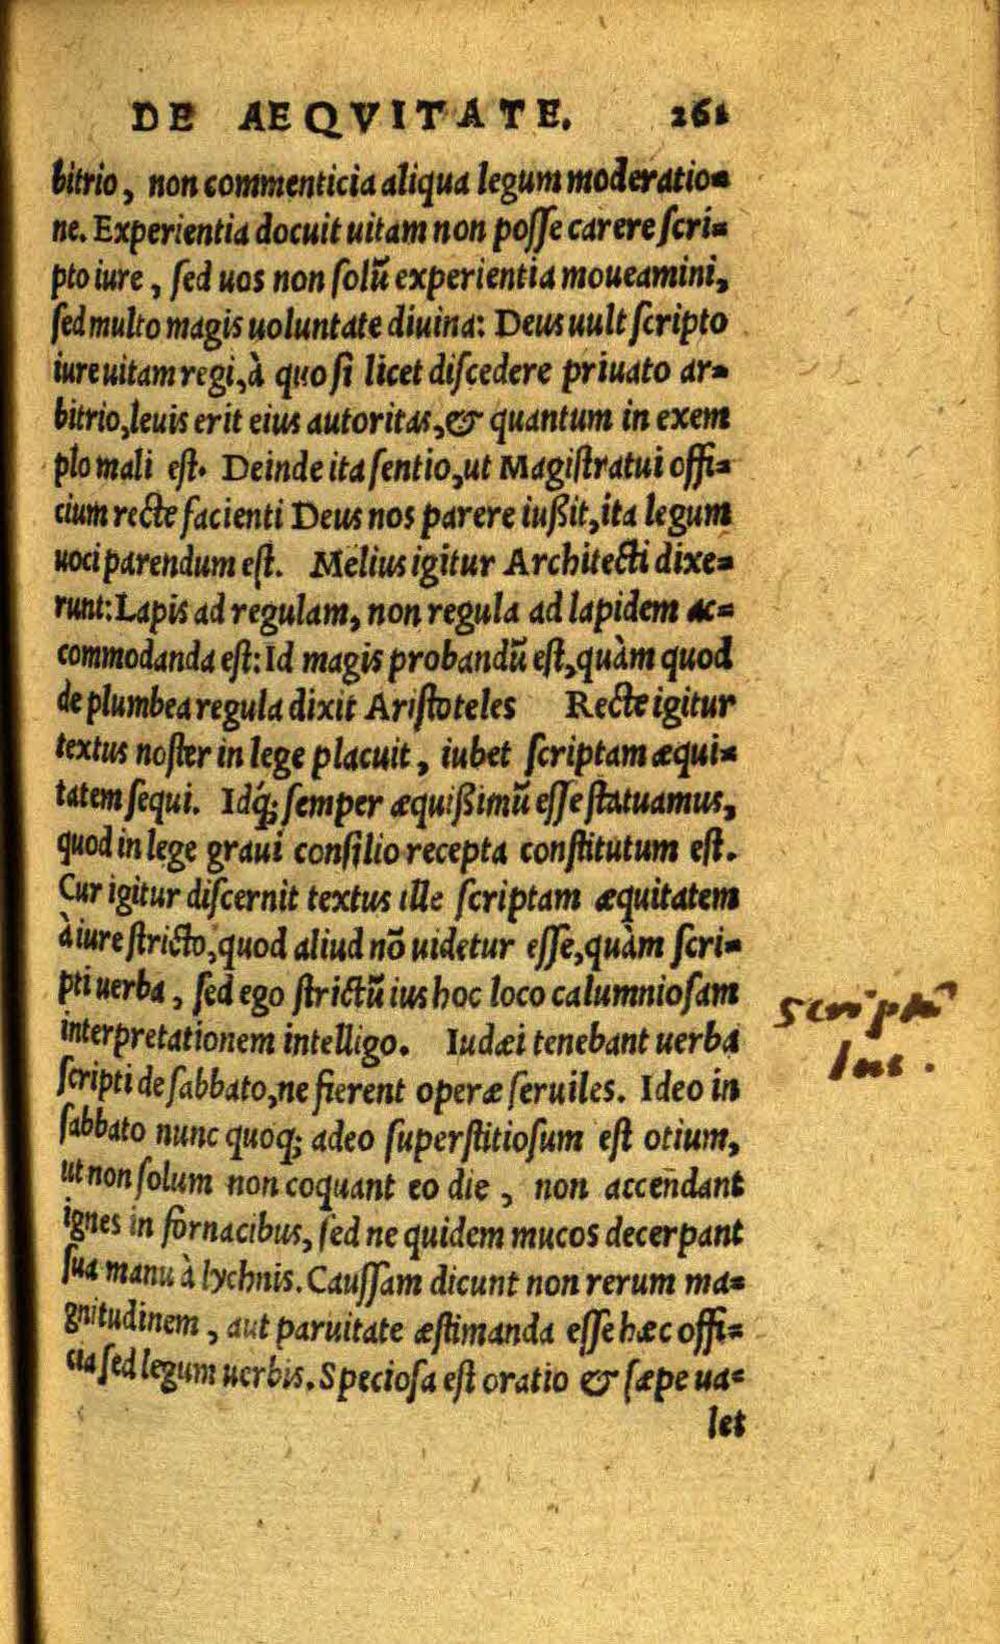 DE AEQVITATE. 261
bitrio, non commenticia aliqua legum moderatio⸗
ne. Experientia docuit uitam non poſſe carere ſcri⸗
pto iure, ſed uos non ſolũ experientia moueamini,
ſed multo magis uoluntate diuina: Deus uult ſcripto
iure uitam regi, à quo ſi licet diſcedere priuato ar⸗
bitrio, leuis erit eius autoritas, & quantum in exem
plo mali eſt. Deinde ita ſentio, ut Magiſtratui offi⸗
cium recte facienti Deus nos parere iußit, ita legum
uoci parendum eſt. Melius igitur Architecti dixe⸗
runt: Lapis ad regulam, non regula ad lapidem ac⸗
commodanda eſt: Id magis probandũ eſt, quàm quod
de plumbea regula dixit Ariſtoteles Recte igitur
textus noſter in lege placuit, iubet ſcriptam æqui⸗
tatem ſequi. Idq́; ſemper æquißimũ eſſe ſtatuamus,
quod in lege graui conſilio recepta conſtitutum eſt.
Cur igitur diſcernit textus ille ſcriptam æquitatem
à iure ſtricto, quod aliud nõ uidetur eſſe, quàm ſcri⸗
pti uerba, ſed ego ſtrictũ ius hoc loco calumnioſam
interpretationem intelligo. Iudæi tenebant uerba
ſcripti de ſabbato, ne fierent operæ ſeruiles. Ideo in
ſabbato nunc quoq; adeo ſuperſtitioſum eſt otium,
ut non ſolum non coquant eo die, non accendant
ignes in fornacibus, ſed ne quidem mucos decerpant
ſua manu à lychnis. Cauſſam dicunt non rerum ma⸗
gnitudinem, aut paruitate æſtimanda eſſe hæc offi⸗
cia ſed legum uerbis. Specioſa eſt oratio & ſæpe ua⸗
let
scriptũ
Ius.